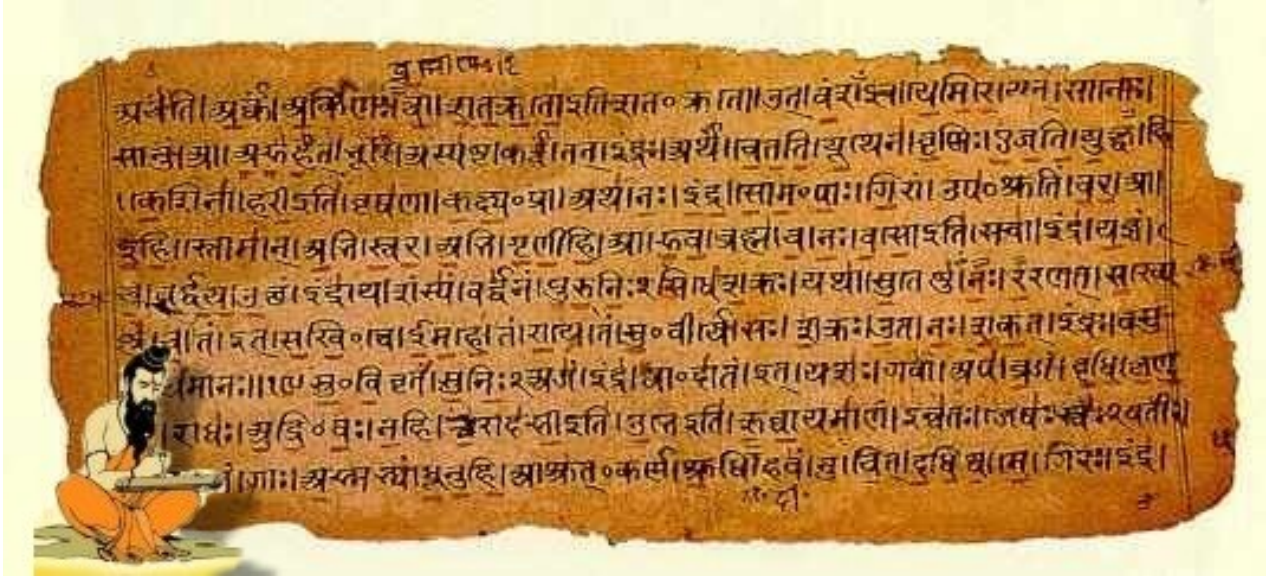 अर्चंति। अर्कं। अर्किणः। शतक्रतो इति शत०क्रतो। उत्। वंशंऽइव। येमिरे। सानोः।
सानुं। आ। अरुहत्। भूरि। अस्पष्ट। कर्त्वं। तत्। इंद्रः। अर्थं। चेतति। यूथेन। वृष्णिः। एजति। युक्ष्व। हि
।केशिना। हरी इति। वृषणा। कक्ष्य०प्रा। अथ। नः। इंद्र। सोम०पाः। गिरां। उप०श्रुतिं। चर। आ।
इहि। स्तोमान्। अभि। स्वर। अभि। गृणीहि। आ। रुव। ब्रह्म। च। नः। वसो इति। सचा। इंद्र। यज्ञं।
च। वर्धय। उक्थं। इंद्राय। शंस्यं। वर्धनं। पुरुनिः२सिधे। शक्रः। यथा। सुतेषु। नः। ररणत्। सख्ये
च। तं। इत्। सखि०त्वे। ईमहे। तं। राये। तं। सु०वीर्ये। सः। शक्रः। उत। नः। शकत्। इंद्रः। वसु
मानः॥१९ सु०विवृतं। सुनिः२अजं। इंद्र। त्वा०दातं। इत्। यशः। गवां। अप। व्रजं। वृधि। कृणु
राधः। अद्रि०वः। नहि। त्वा। रोदसी इति। उभे इति। ऋघायमाणं। इन्वतः। जेषः। स्वः२वतीः।
गाः। अस्मभ्यं। धूनुहि। आश्रुत्०कर्ण। श्रुधि। हवं। नु। चित्। दधिष्व। मे। गिरः। इंद्र।